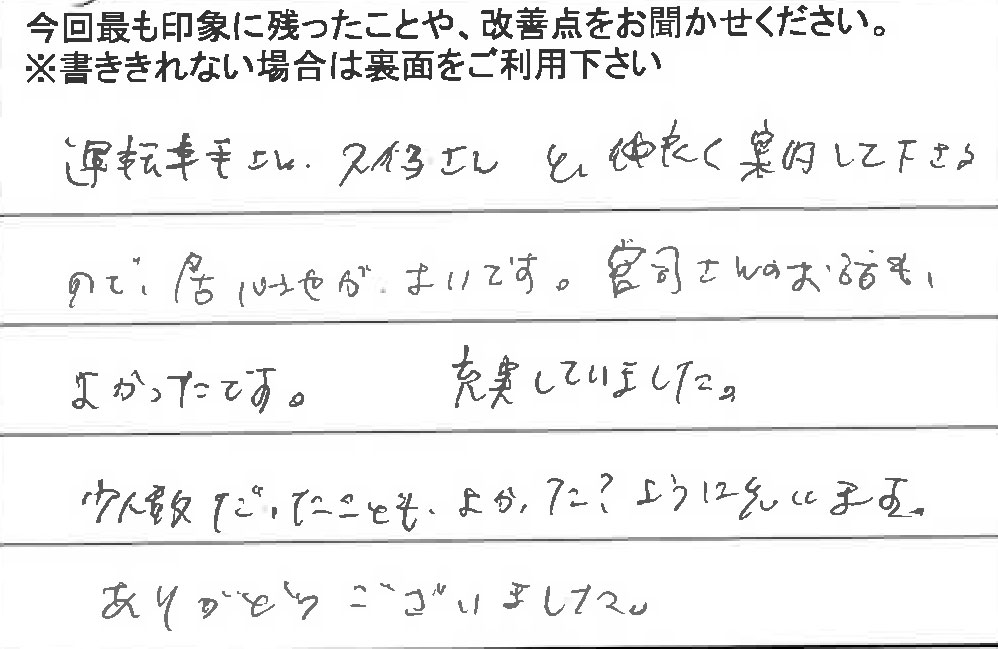 今回最も印象に残ったことや、改善点をお聞かせください。
※書ききれない場合は裏面をご利用下さい
運転手さん、 さん と、仲良く案内して下さる
ので、居心地が よいです。宮司さんのお話も、
よかったです。 充実していました。
少人数だったことも、よかった?ように思います。
ありがとうございました。